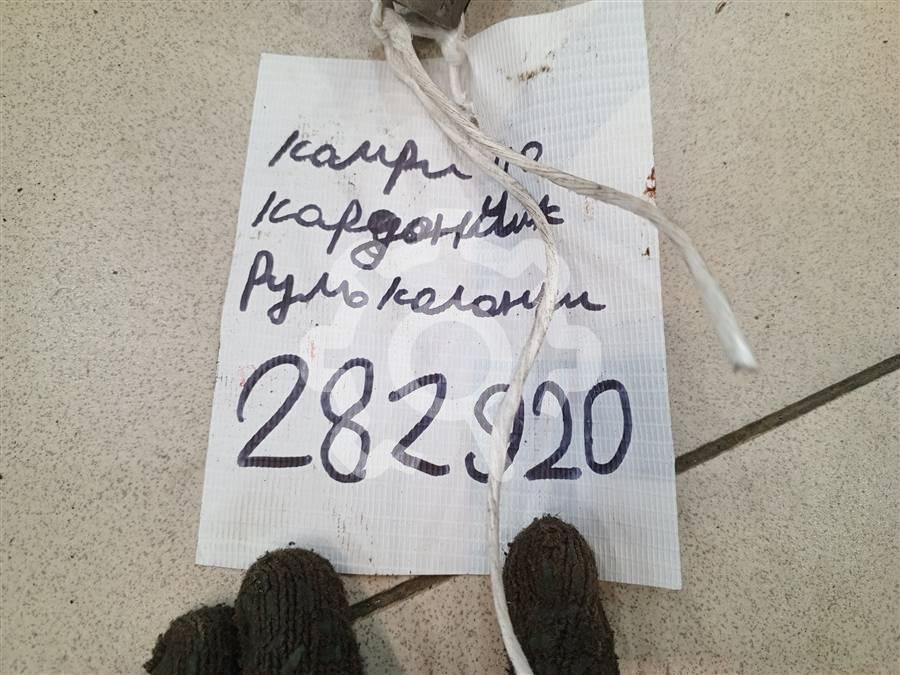 Камри 40
Кардончик
Румь колонки
282920